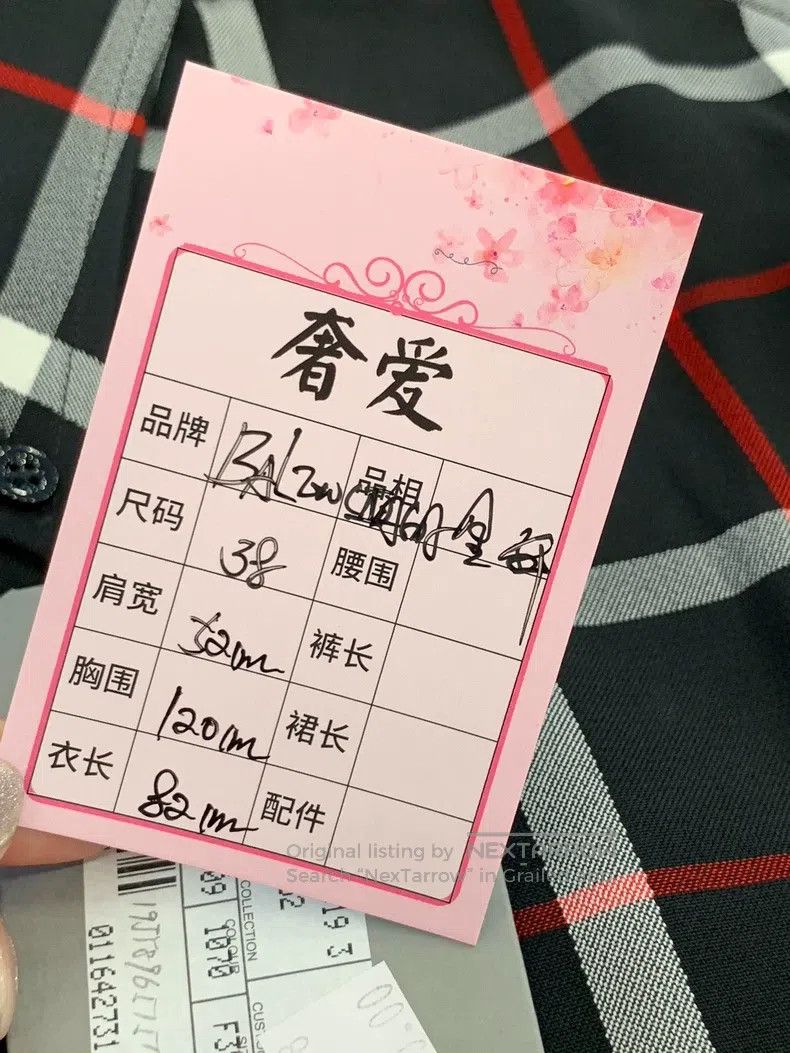 奢爱
品牌 品相
尺码 38 腰围
肩宽 52cm 裤长
胸围 120cm 裙长
衣长 82cm 配件
Original listing by NEXTARROW
Search "NexTarrow" in Grailed
COLLECTION
19 3
1070
011642731